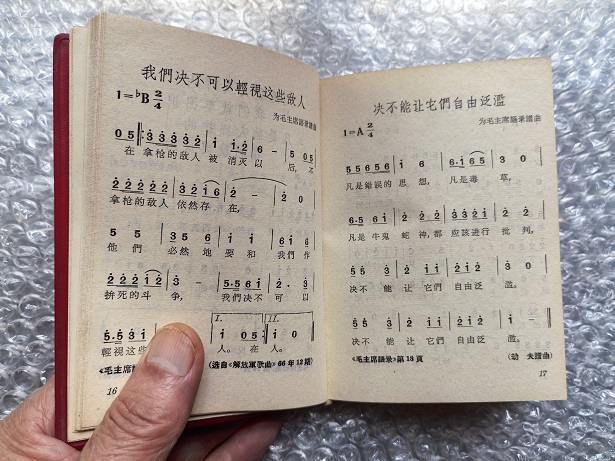 我們决不可以輕視这些敌人
1=♭B 2/4
为毛主席語录譜曲
0 5 3 3 3 3 2 1 1·2 6 - 5 0 5
在 拿枪的敌人 被 消灭 以 后, 不
2 2 2 2 2 3 2 1 6 2 - 2 0
拿枪的敌人 依然存 在,
5 5 3 5 6 i i 6 i 6
他 們 必然 地 要 和 我們 作
2 2 2 1 2 3 5·5 6 5 i i
拚死的斗 争, 我們决不 可 以
I. II.
5·5 3 i i 0 5 i 0
輕視这些 人。 在 人。
《毛主席
(选自《解放軍歌曲》66年12期)
16
决不能让它們自由泛滥
1=A 2/4
为毛主席語录譜曲
5 5 6 5 6 i 6 6·i 6 5 3 0
凡是錯誤的 思 想, 凡是毒 草,
6·5 6 i 2 2 3 3 2 i 2 2
凡是牛鬼 蛇 神, 都 应該进行 批 判,
5 5 3 2 i 2 i 2 3 0
决不 能 让 它們 自由泛 滥。
5 5 3 2 i 2 i 2 i 0
决不 能 让 它們 自由泛 滥。
《毛主席語录》第18頁
(劫 夫譜曲)
17